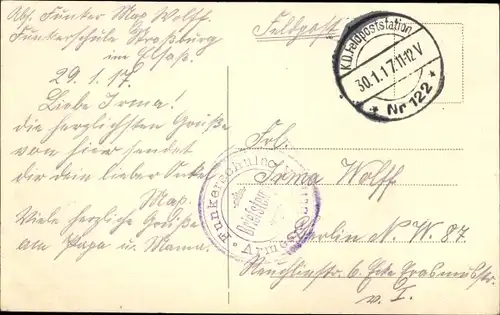 Abs. Funker Max Wolff.
Funkerschule Straßburg
im Elsaß.
29.1.17.
Liebe Irma!
die herzlichsten Grüße
von hier sendet
dir dein lieber Onkel
Max.
Viele herzliche Grüße
an Papa u. Mama.
Feldpost
K.D. Feldpoststation
30.1.17. 11-12 V
* Nr 122 *
Frl.
Irma Wolff
Berlin N. W. 87.
Reuchlinstr. 6. Ecke Erasmusstr.
v. I.
Funkerschule
Briefstempel